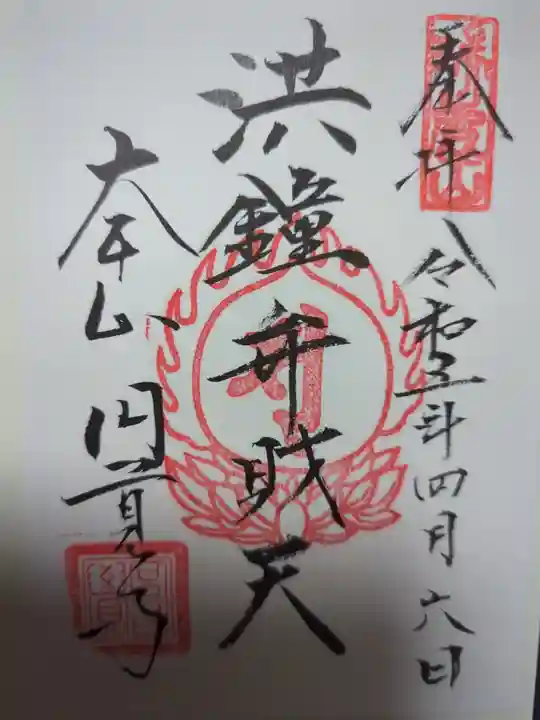 奉拝 令和五年四月六日
洪鐘弁財天
大本山 円覚寺